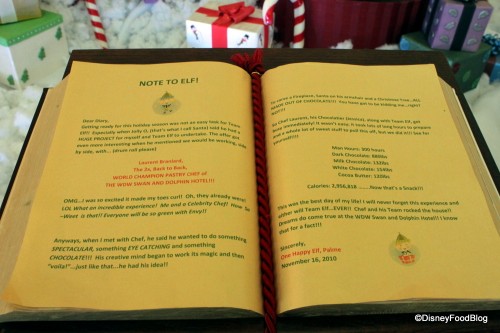 NOTE TO ELF!
Dear Diary,
Getting ready for this holiday season was not an easy task for Team
Elf! Especially when Jolly O, (that's what I call Santa) told he had a
HUGE PROJECT for myself and Team Elf to undertake. The offer got
even more interesting when he mentioned we would be working, side
by side, with... (drum roll please)
Laurent Branlard,
The 2x, Back to Back,
WORLD CHAMPION PASTRY CHEF of
THE WOW SWAN AND DOLPHIN HOTEL!!!
OMG...I was so excited it made my toes curl! Oh, they already were!
LOL What an incredible experience! Me and a Celebrity Chef! How So
Weet is that!! Everyone will be so green with Envy!!
Anyways, when I met with Chef, he said he wanted to do something
SPECTACULAR, something EYE CATCHING and something
CHOCOLATE!!! His creative mind began to work its magic and then
"voila!"...just like that...he had his idea!!
a Fireplace, Santa on his armchair and a Christmas Tree...ALL
MADE OUT OF CHOCOLATE!! You have got to be kidding me...right!
Chef Laurent, his Chocolatier (Jessica), along with Team Elf, got
busy immediately! It wasn't easy. It took lots of long hours to prepare
and a whole lot of sweet stuff to pull this off, but we did it!! See for
yourself!!!
Man Hours: 300 hours
Dark Chocolate: 880lbs
Milk Chocolate: 132lbs
White Chocolate: 154lbs
Cocoa Butter: 122lbs
Calories: 2,956,818 .......Now that's a Snack!!
This was the best day of my life! I will never forget this experience and
either will Team Elf...EVER!! Chef and his Team rocked the house!!
Dreams do come true at the WOW Swan and Dolphin Hotel!! I know
that for a fact!!!
Sincerely,
One Happy Elf, Palma
November 16, 2010
©DisneyFoodBlog